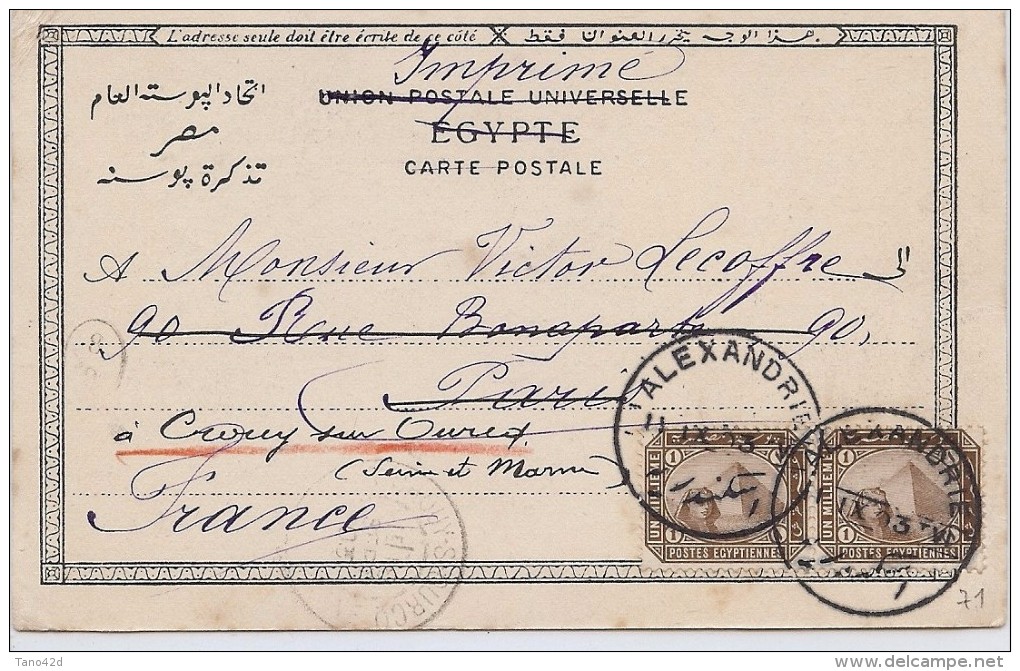 L'adresse seule doit être écrite de ce côté هذا الوجه يحرر العنوان فقط
Imprimé
اتحاد البوسته العام
UNION POSTALE UNIVERSELLE
مصر
EGYPTE
تذكرة بوسته
CARTE POSTALE
A Monsieur Victor Lecoffre الى
90 Rue Bonaparte 90,
Paris
à Crouy sur Ourcq
(Seine et Marne)
France
ALEXANDRIE
11 IX 03
ALEXANDRIE
11 IX 03 T W
1 1
UN MILLIEME
1 1
POSTES EGYPTIENNES
1 1
UN MILLIEME
1 1
POSTES EGYPTIENNES
71
Tano42d
delcampe.net